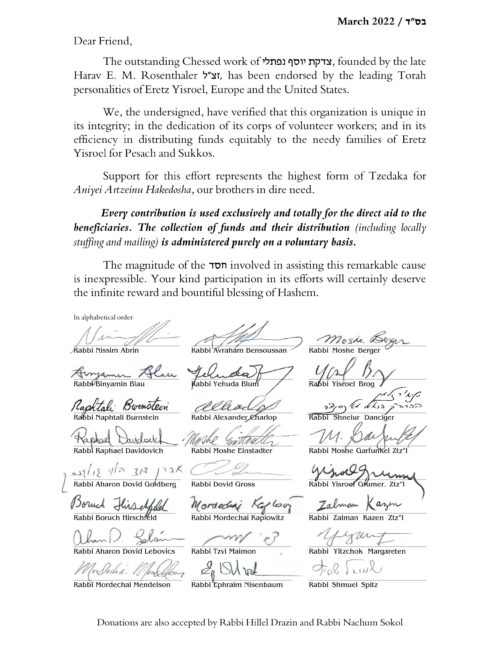 בס"ד / March 2022
Dear Friend,
The outstanding Chessed work of צדקת יוסף נפתלי, founded by the late
Harav E. M. Rosenthaler זצ"ל, has been endorsed by the leading Torah
personalities of Eretz Yisroel, Europe and the United States.
We, the undersigned, have verified that this organization is unique in
its integrity; in the dedication of its corps of volunteer workers; and in its
efficiency in distributing funds equitably to the needy families of Eretz
Yisroel for Pesach and Sukkos.
Support for this effort represents the highest form of Tzedaka for
Aniyei Artzeinu Hakedosha, our brothers in dire need.
Every contribution is used exclusively and totally for the direct aid to the
beneficiaries. The collection of funds and their distribution (including locally
stuffing and mailing) is administered purely on a voluntary basis.
The magnitude of the חסד involved in assisting this remarkable cause
is inexpressible. Your kind participation in its efforts will certainly deserve
the infinite reward and bountiful blessing of Hashem.
In alphabetical order
Moshe Berger
Rabbi Nissim Abrin Rabbi Avraham Bensoussan Rabbi Moshe Berger
Binyamin Blau Yehuda
Rabbi Binyamin Blau Rabbi Yehuda Blum Rabbi Yisroel Brog
Naphtali Burnstein
Rabbi Naphtali Burnstein Rabbi Alexander Charlop Rabbi Shneiur Danciger
Raphael Davidovich Moshe Einstadter M. Garfunkel
Rabbi Raphael Davidovich Rabbi Moshe Einstadter Rabbi Moshe Garfunkel Ztz"l
Rabbi Aharon Dovid Goldberg Rabbi Dovid Gross Rabbi Yisroel Grumer, Ztz"l
Boruch Hirschfeld Mordechai Kaplowitz Zalman Kazen
Rabbi Boruch Hirschfeld Rabbi Mordechai Kaplowitz Rabbi Zalman Kazen Ztz"l
Rabbi Aharon Dovid Lebovics Rabbi Tzvi Maimon Rabbi Yitzchok Margareten
Mordechai Mendelson
Rabbi Mordechai Mendelson Rabbi Ephraim Nisenbaum Rabbi Shmuel Spitz
Donations are also accepted by Rabbi Hillel Drazin and Rabbi Nachum Sokol